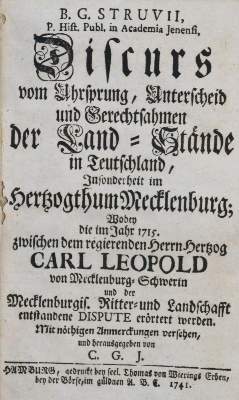 B. G. STRUVII,
P. Hist. Publ. in Academia Jenensi,
Discurs
vom Uhrsprung, Unterscheid
und Gerechtsahmen
der Land-Stände
in Teutschland,
Insonderheit im
Hertzogthum Mecklenburg;
Wobey
die im Jahr 1715.
zwischen dem regierenden Herrn Hertzog
CARL LEOPOLD
von Mecklenburg-Schwerin
und der
Mecklenburgis. Ritter- und Landschafft
entstandene DISPUTE erörtert werden.
Mit nöthigen Anmerckungen versehen,
und herausgegeben von
C. G. J.
HAMBURG, gedruckt bey seel. Thomas von Wierings Erben,
bey der Börse, im güldnen A. B. C. 1741.